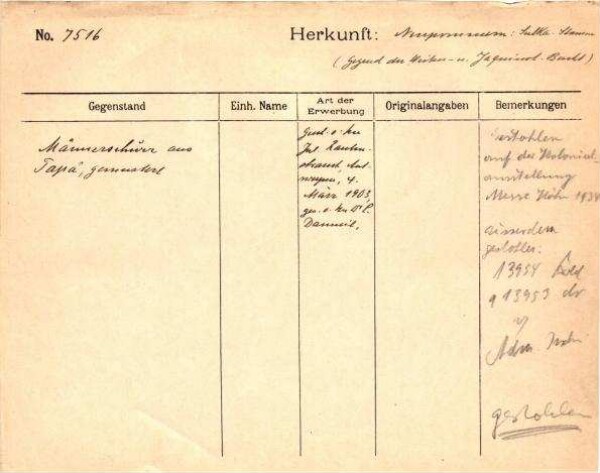 No. 7516
Herkunft: Neupommern: Sulka-Stamm
(Gegend der Weiten- u. Jaquinot-Bucht)
Gegenstand
Einh. Name
Art der
Erwerbung
Originalangaben
Bemerkungen
Männerschürz aus
Tapa, gemustert
Gesch. v. Hrn
Jul. Rauten-
strauch, Ant-
werpen, 4.
März 1903,
ges. v. Hrn Dr P.
Danneil.
Gestohlen
auf der Kolonial-
ausstellung
Messe Köln 1934
ausserdem
gestohlen
13954
13953
gestohlen